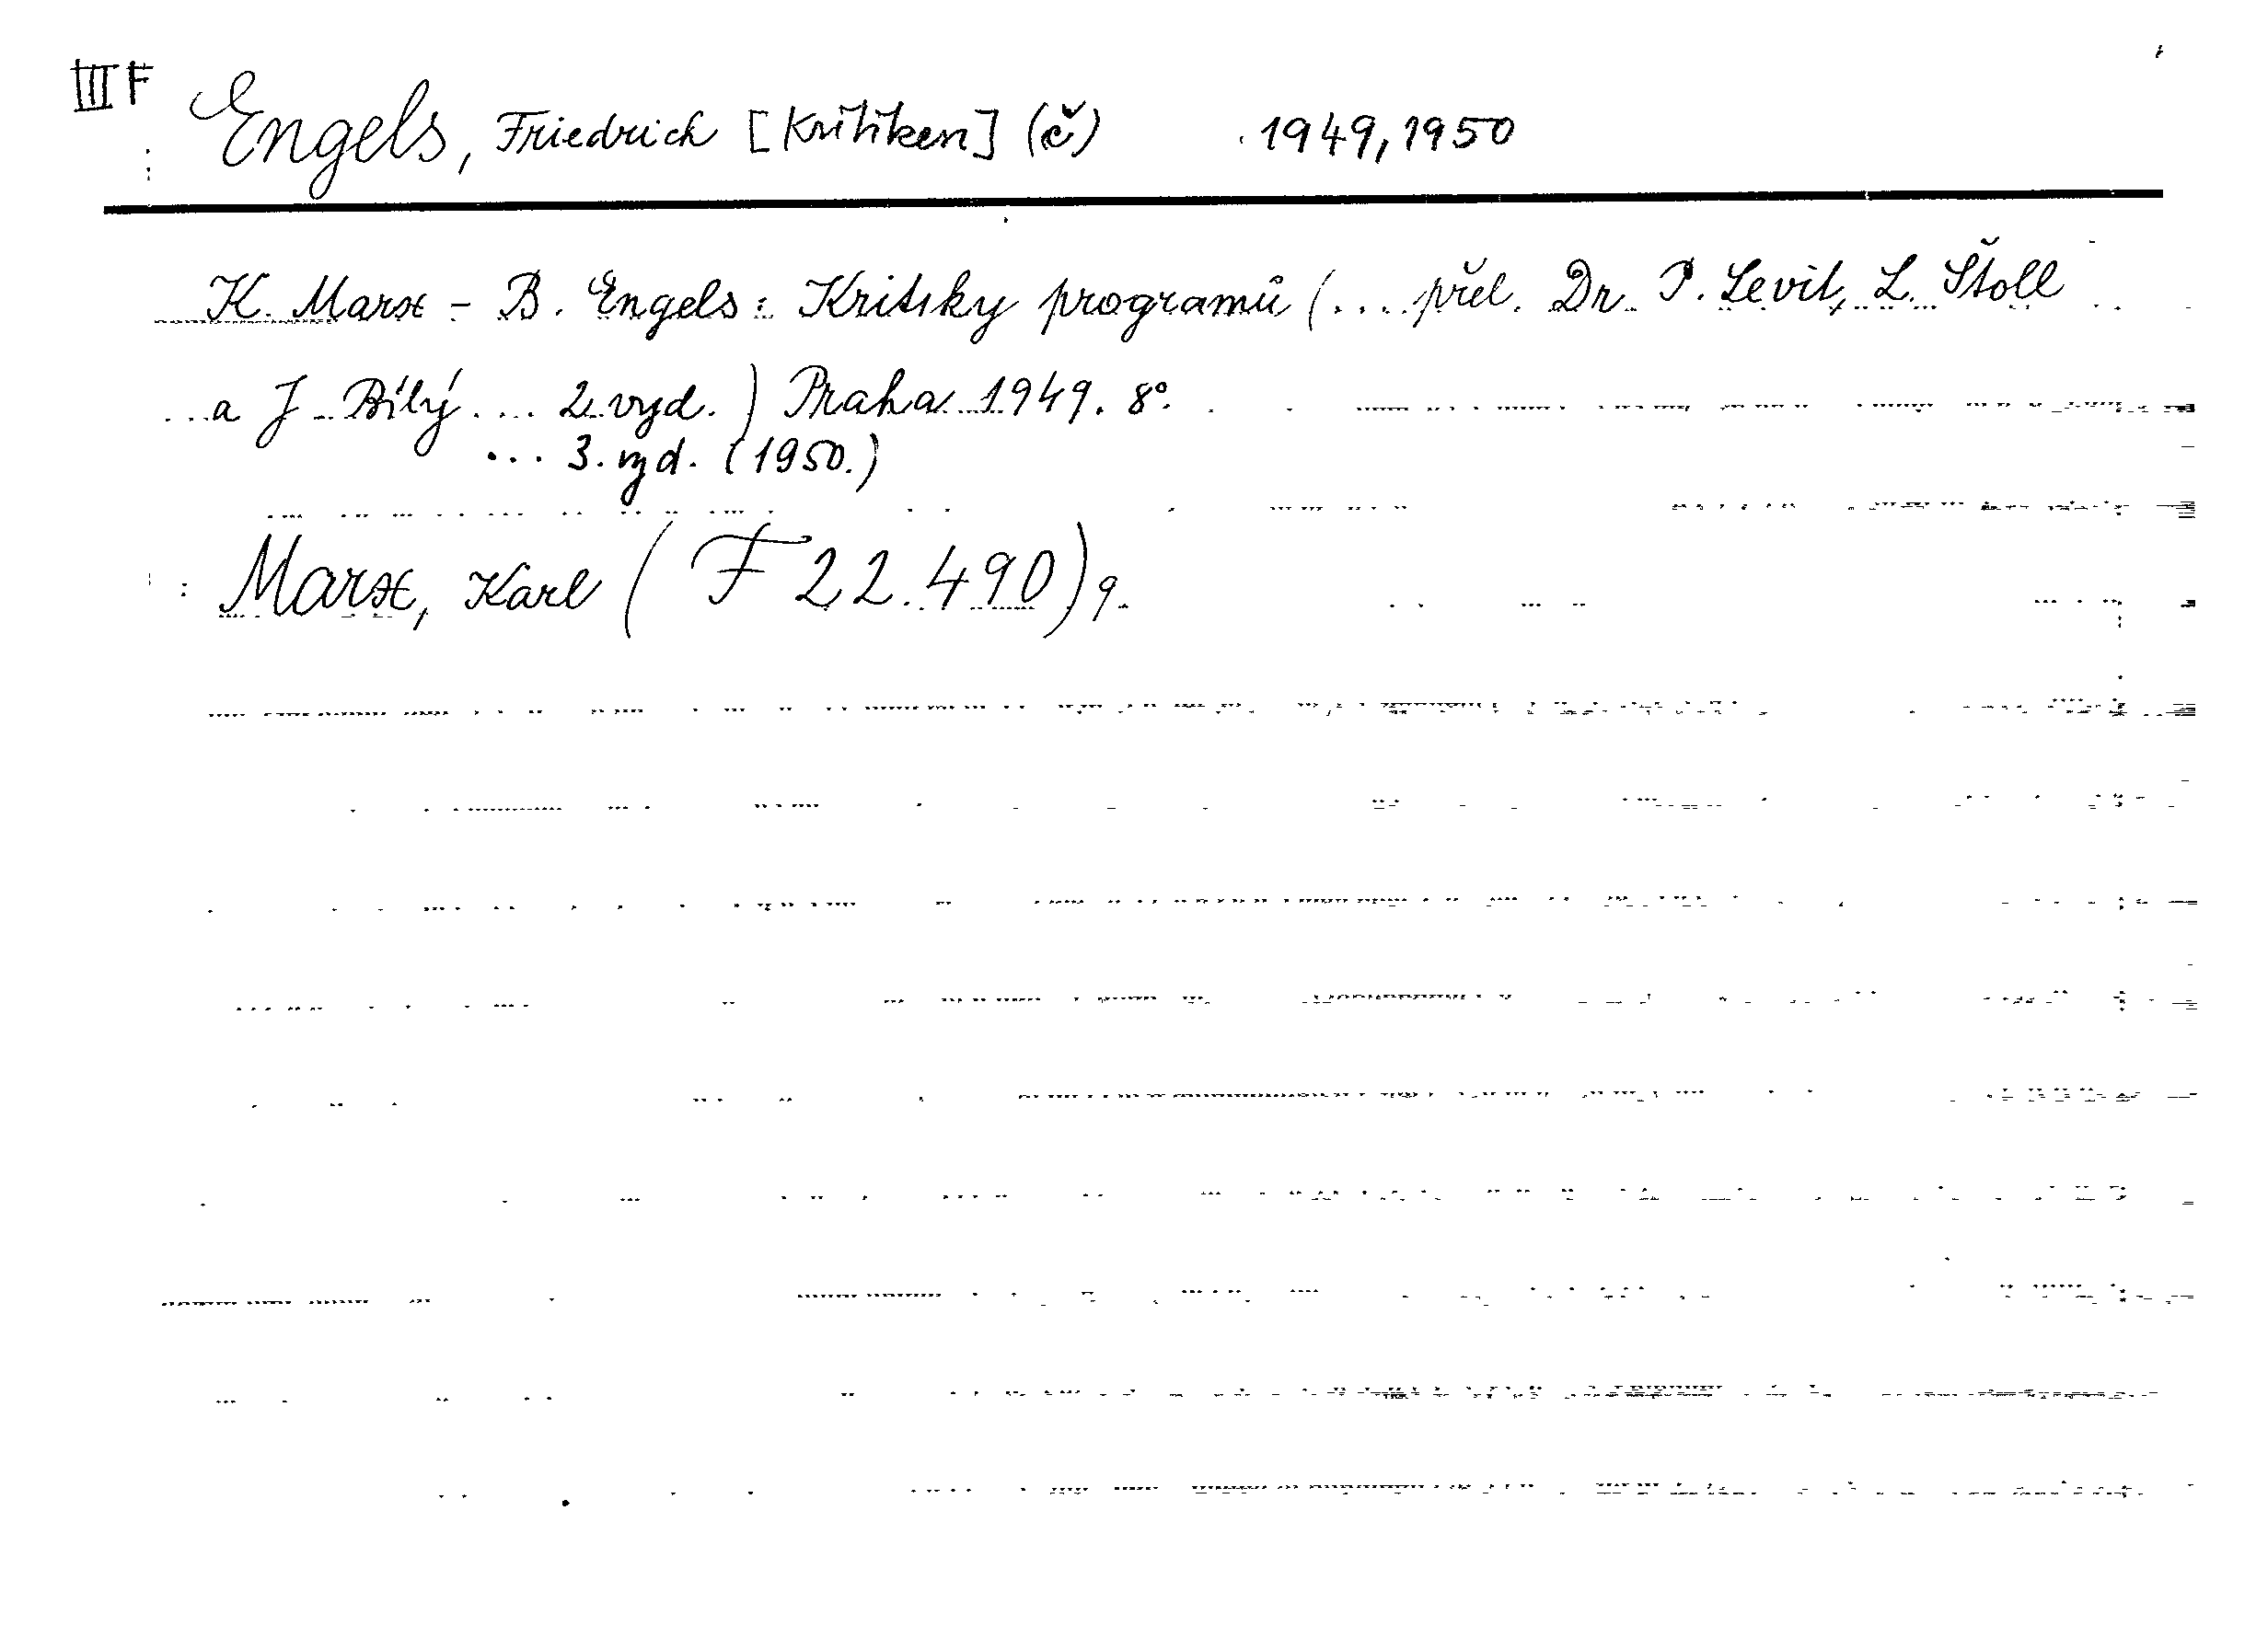 III F Engels, Friedrich [Kritiken] (č) 1949, 1950
K. Marx - B. Engels: Kritiky programů (... přel. Dr. P. Levit, L. Štoll
a J. Bílý ... 2. vyd.) Praha 1949. 8°.
... 3. vyd. (1950.)
Marx, Karl (F 22.490) 9.